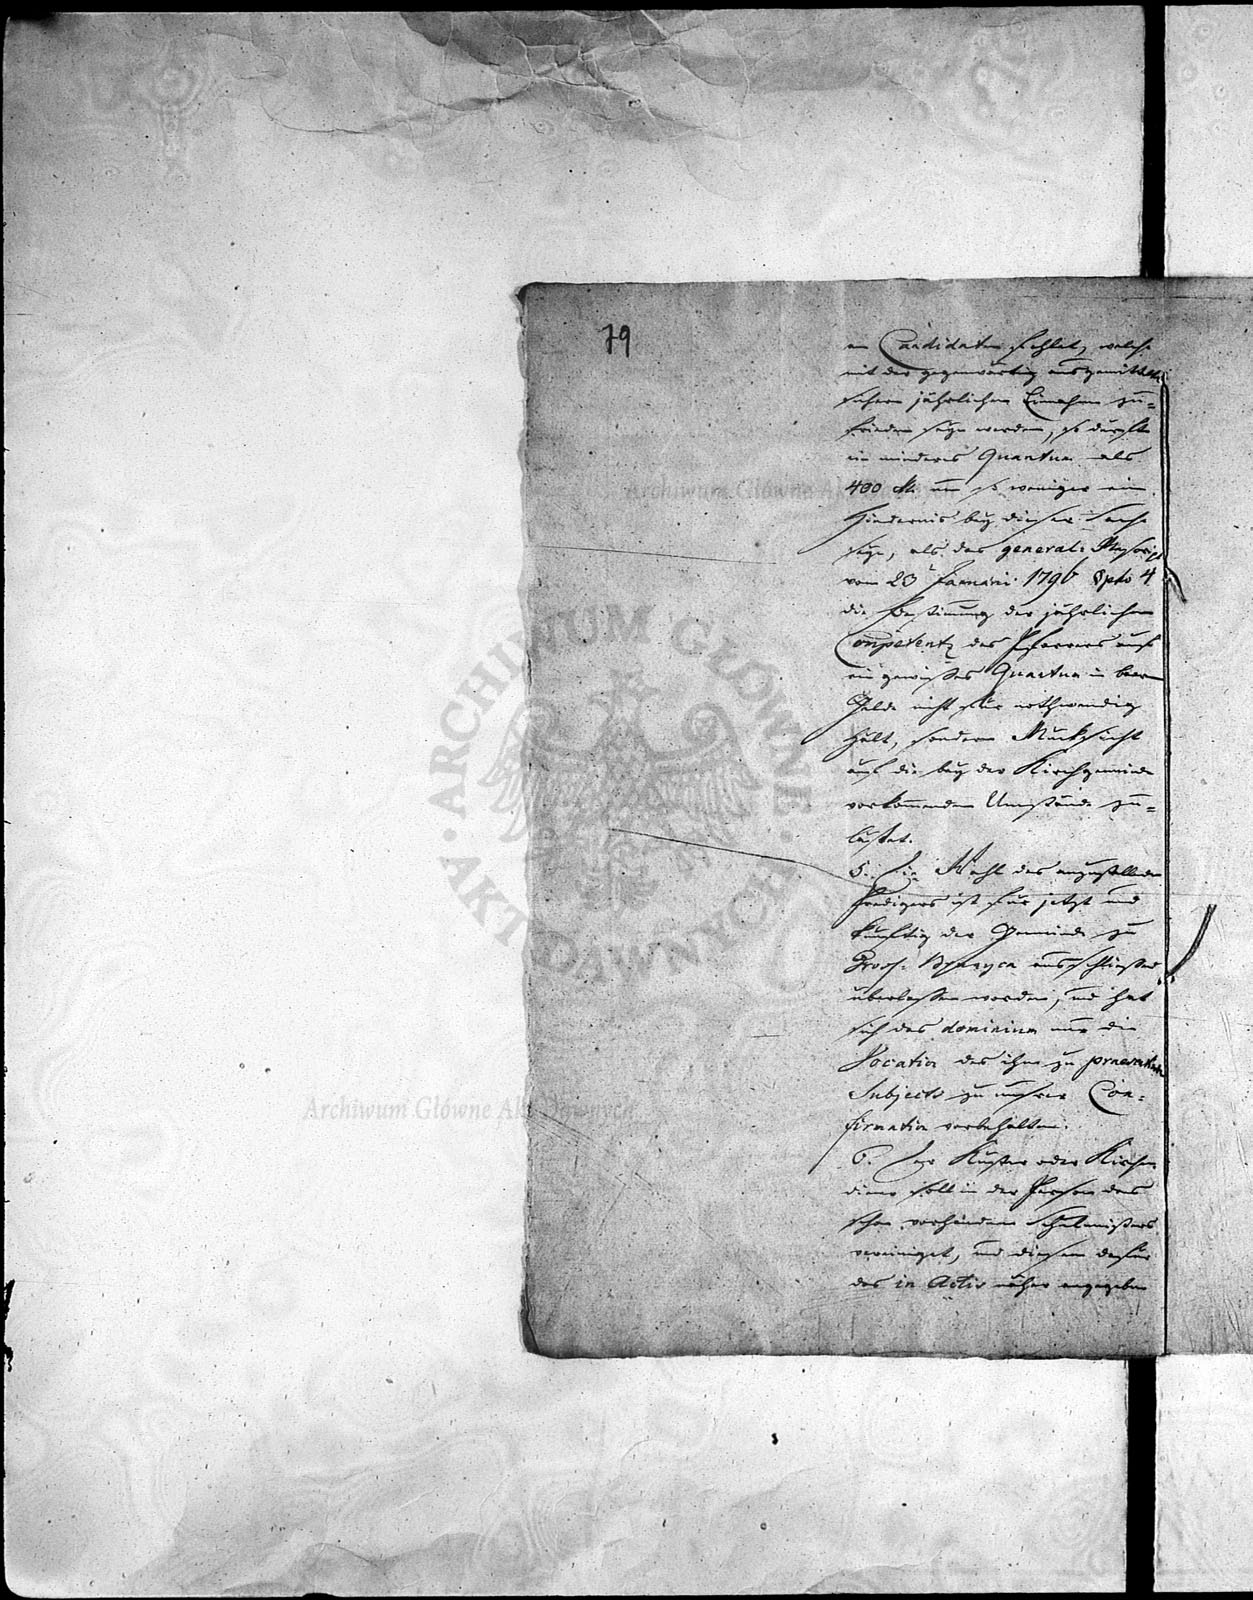 79
an Candidaten fehlet, welche
mit der gegenwärtig ausgemittel
sichern jährlichen Einnahme zu-
frieden seyn werden, so dürfte
ein minderes Quantum als
400 rth um so weniger ein
Hindernis bey dieser Sache
seyn, als das general: Rescript
vom 23 Januari 1796 Spto 4
die Bestimmung der jährlichen
Competentz des Pfarrers auf
ein gewisses Quantum in baarem
Gelde nicht für nothwendig
hält, sondern Rücksicht
auf die bey der Kirchgemeinde
vorkommenden Umstände zu-
läßet.
5. Die Wahl des anzustellenden
Predigers ist für jetzt und
künftig der Gemeinde zu
Groß. ausschließend
überlassen worden, und hat
sich das dominium nur die
Vocation des ihm zu
Subjects zu unsrer Con-
firmation vorbehalten.
6. Der Küster oder Kirchen
diener soll in der Person des
schon vorhandenen Schulmeisters
vereiniget, und diesem dafür
das in Actis näher angegebene
Archiwum Główne Akt Dawnych
ARCHIWUM GŁÓWNE · AKT DAWNYCH ·
Archiwum Główne Akt Dawnych